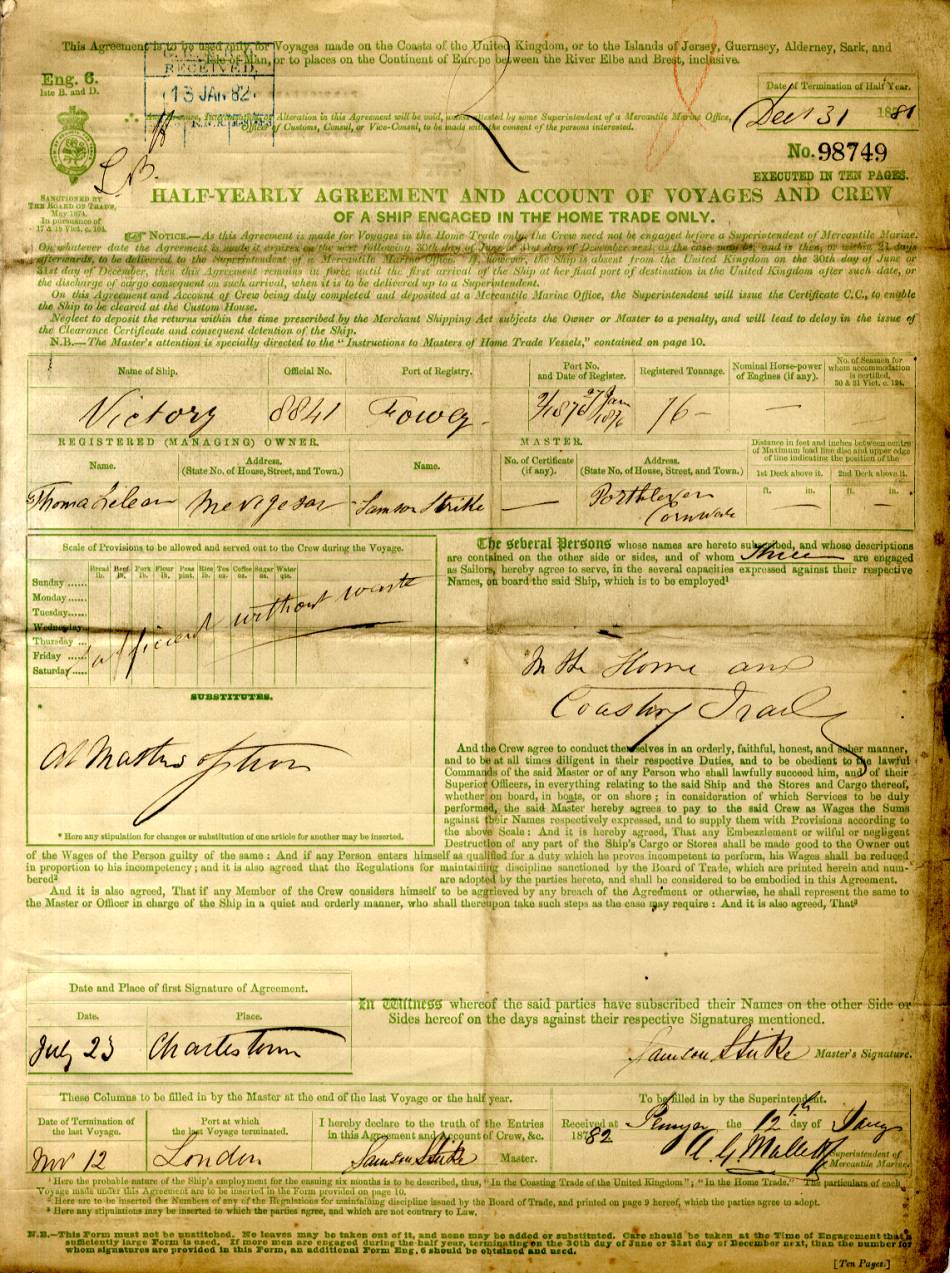 This Agreement is to be used only for Voyages made on the Coasts of the United Kingdom, or to the Islands of Jersey, Guernsey, Alderney, Sark, and
Isle of Man, or to places on the Continent of Europe between the River Elbe and Brest, inclusive.
Eng. 6.
Iste B. and D.
RECEIVED,
13 JAN. 82
Date of Termination of Half Year.
Dec 31 1881
Alteration in this Agreement will be void, unless attested by some Superintendent of a Mercantile Marine Office,
Office of Customs, Consul, or Vice-Consul, to be made with the consent of the persons interested.
No. 98749
EXECUTED IN TEN PAGES.
SANCTIONED BY
THE BOARD OF TRADE,
May 1874.
In pursuance of
17 & 18 Vict. c. 104.
HALF-YEARLY AGREEMENT AND ACCOUNT OF VOYAGES AND CREW
OF A SHIP ENGAGED IN THE HOME TRADE ONLY.
NOTICE.—As this Agreement is made for Voyages in the Home Trade only, the Crew need not be engaged before a Superintendent of Mercantile Marine.
On whatever date the Agreement is made it expires on the next following 30th day of June or 31st day of December next, as the case may be, and is then, or within 21 days
afterwards, to be delivered to the Superintendent of a Mercantile Marine Office. If, however, the Ship is absent from the United Kingdom on the 30th day of June or
31st day of December, then this Agreement remains in force until the first arrival of the Ship at her final port of destination in the United Kingdom after such date, or
the discharge of cargo consequent on such arrival, when it is to be delivered up to a Superintendent.
On this Agreement and Account of Crew being duly completed and deposited at a Mercantile Marine Office, the Superintendent will issue the Certificate C.C., to enable
the Ship to be cleared at the Custom House.
Neglect to deposit the returns within the time prescribed by the Merchant Shipping Act subjects the Owner or Master to a penalty, and will lead to delay in the issue of
the Clearance Certificate and consequent detention of the Ship.
N.B.—The Master's attention is specially directed to the "Instructions to Masters of Home Trade Vessels," contained on page 10.
Name of Ship. Official No. Port of Registry. Port No. and Date of Register. Registered Tonnage. Nominal Horse-power of Engines (if any). No. of Seamen for whom accommodation is certified, 30 & 31 Vict. c. 124.
Victory 8841 Fowey 2/1876 27 Jan 1876 76 — —
REGISTERED (MANAGING) OWNER. MASTER. Distance in feet and inches between centre of Maximum load line disc and upper edge of line indicating the position of the
Name. Address. (State No. of House, Street, and Town.) Name. No. of Certificate (if any). Address. (State No. of House, Street, and Town.) 1st Deck above it. 2nd Deck above it.
ft. in. ft. in.
Thomas Lelean Mevagissey Samson Strike — Porthleven
Cornwall — —
Scale of Provisions to be allowed and served out to the Crew during the Voyage.
Bread lb. Beef lb. Pork lb. Flour lb. Peas pint. Rice lb. Tea oz. Coffee oz. Sugar oz. Water qts.
Sunday......
Monday ......
Tuesday......
Wednesday...
Thursday ...
Friday ......
Saturday......
Sufficient without waste
SUBSTITUTES.
At Masters option
* Here any stipulation for changes or substitution of one article for another may be inserted.
The several Persons whose names are hereto subscribed, and whose descriptions
are contained on the other side or sides, and of whom three are engaged
as Sailors, hereby agree to serve, in the several capacities expressed against their respective
Names, on board the said Ship, which is to be employed¹
In the Home and
Coasting Trade
And the Crew agree to conduct themselves in an orderly, faithful, honest, and sober manner,
and to be at all times diligent in their respective Duties, and to be obedient to the lawful
Commands of the said Master or of any Person who shall lawfully succeed him, and of their
Superior Officers, in everything relating to the said Ship and the Stores and Cargo thereof,
whether on board, in boats, or on shore; in consideration of which Services to be duly
performed, the said Master hereby agrees to pay to the said Crew as Wages the Sums
against their Names respectively expressed, and to supply them with Provisions according to
the above Scale: And it is hereby agreed, That any Embezzlement or wilful or negligent
Destruction of any part of the Ship's Cargo or Stores shall be made good to the Owner out
of the Wages of the Person guilty of the same: And if any Person enters himself as qualified for a duty which he proves incompetent to perform, his Wages shall be reduced
in proportion to his incompetency; and it is also agreed that the Regulations for maintaining discipline sanctioned by the Board of Trade, which are printed herein and num-
bered² are adopted by the parties hereto, and shall be considered to be embodied in this Agreement.
And it is also agreed, That if any Member of the Crew considers himself to be aggrieved by any breach of the Agreement or otherwise, he shall represent the same to
the Master or Officer in charge of the Ship in a quiet and orderly manner, who shall thereupon take such steps as the case may require: And it is also agreed, That³
Date and Place of first Signature of Agreement.
Date. Place.
July 23 Charlestown
In Witness whereof the said parties have subscribed their Names on the other Side or
Sides hereof on the days against their respective Signatures mentioned.
Samson Strike Master's Signature.
These Columns to be filled in by the Master at the end of the last Voyage or the half year.
Date of Termination of the last Voyage. Port at which the last Voyage terminated. I hereby declare to the truth of the Entries in this Agreement and Account of Crew, &c.
Nov 12 London Samson Strike Master.
To be filled in by the Superintendent.
Received at the 12th day of Jany
1882
Superintendent of
Mercantile Marine.
¹ Here the probable nature of the Ship's employment for the ensuing six months is to be described, thus, "In the Coasting Trade of the United Kingdom"; "In the Home Trade." The particulars of each
Voyage made under this Agreement are to be inserted in the Form provided on page 10.
² Here are to be inserted the Numbers of any of the Regulations for maintaining discipline issued by the Board of Trade, and printed on page 9 hereof, which the parties agree to adopt.
³ Here any stipulations may be inserted to which the parties agree, and which are not contrary to Law.
N.B.—This Form must not be unstitched. No leaves may be taken out of it, and none may be added or substituted. Care should be taken at the Time of Engagement that a
sufficiently large Form is used. If more men are engaged during the half year, terminating on the 30th day of June or 31st day of December next, than the number for
whom signatures are provided in this Form, an additional Form Eng. 6 should be obtained and used.
[Ten Pages.]